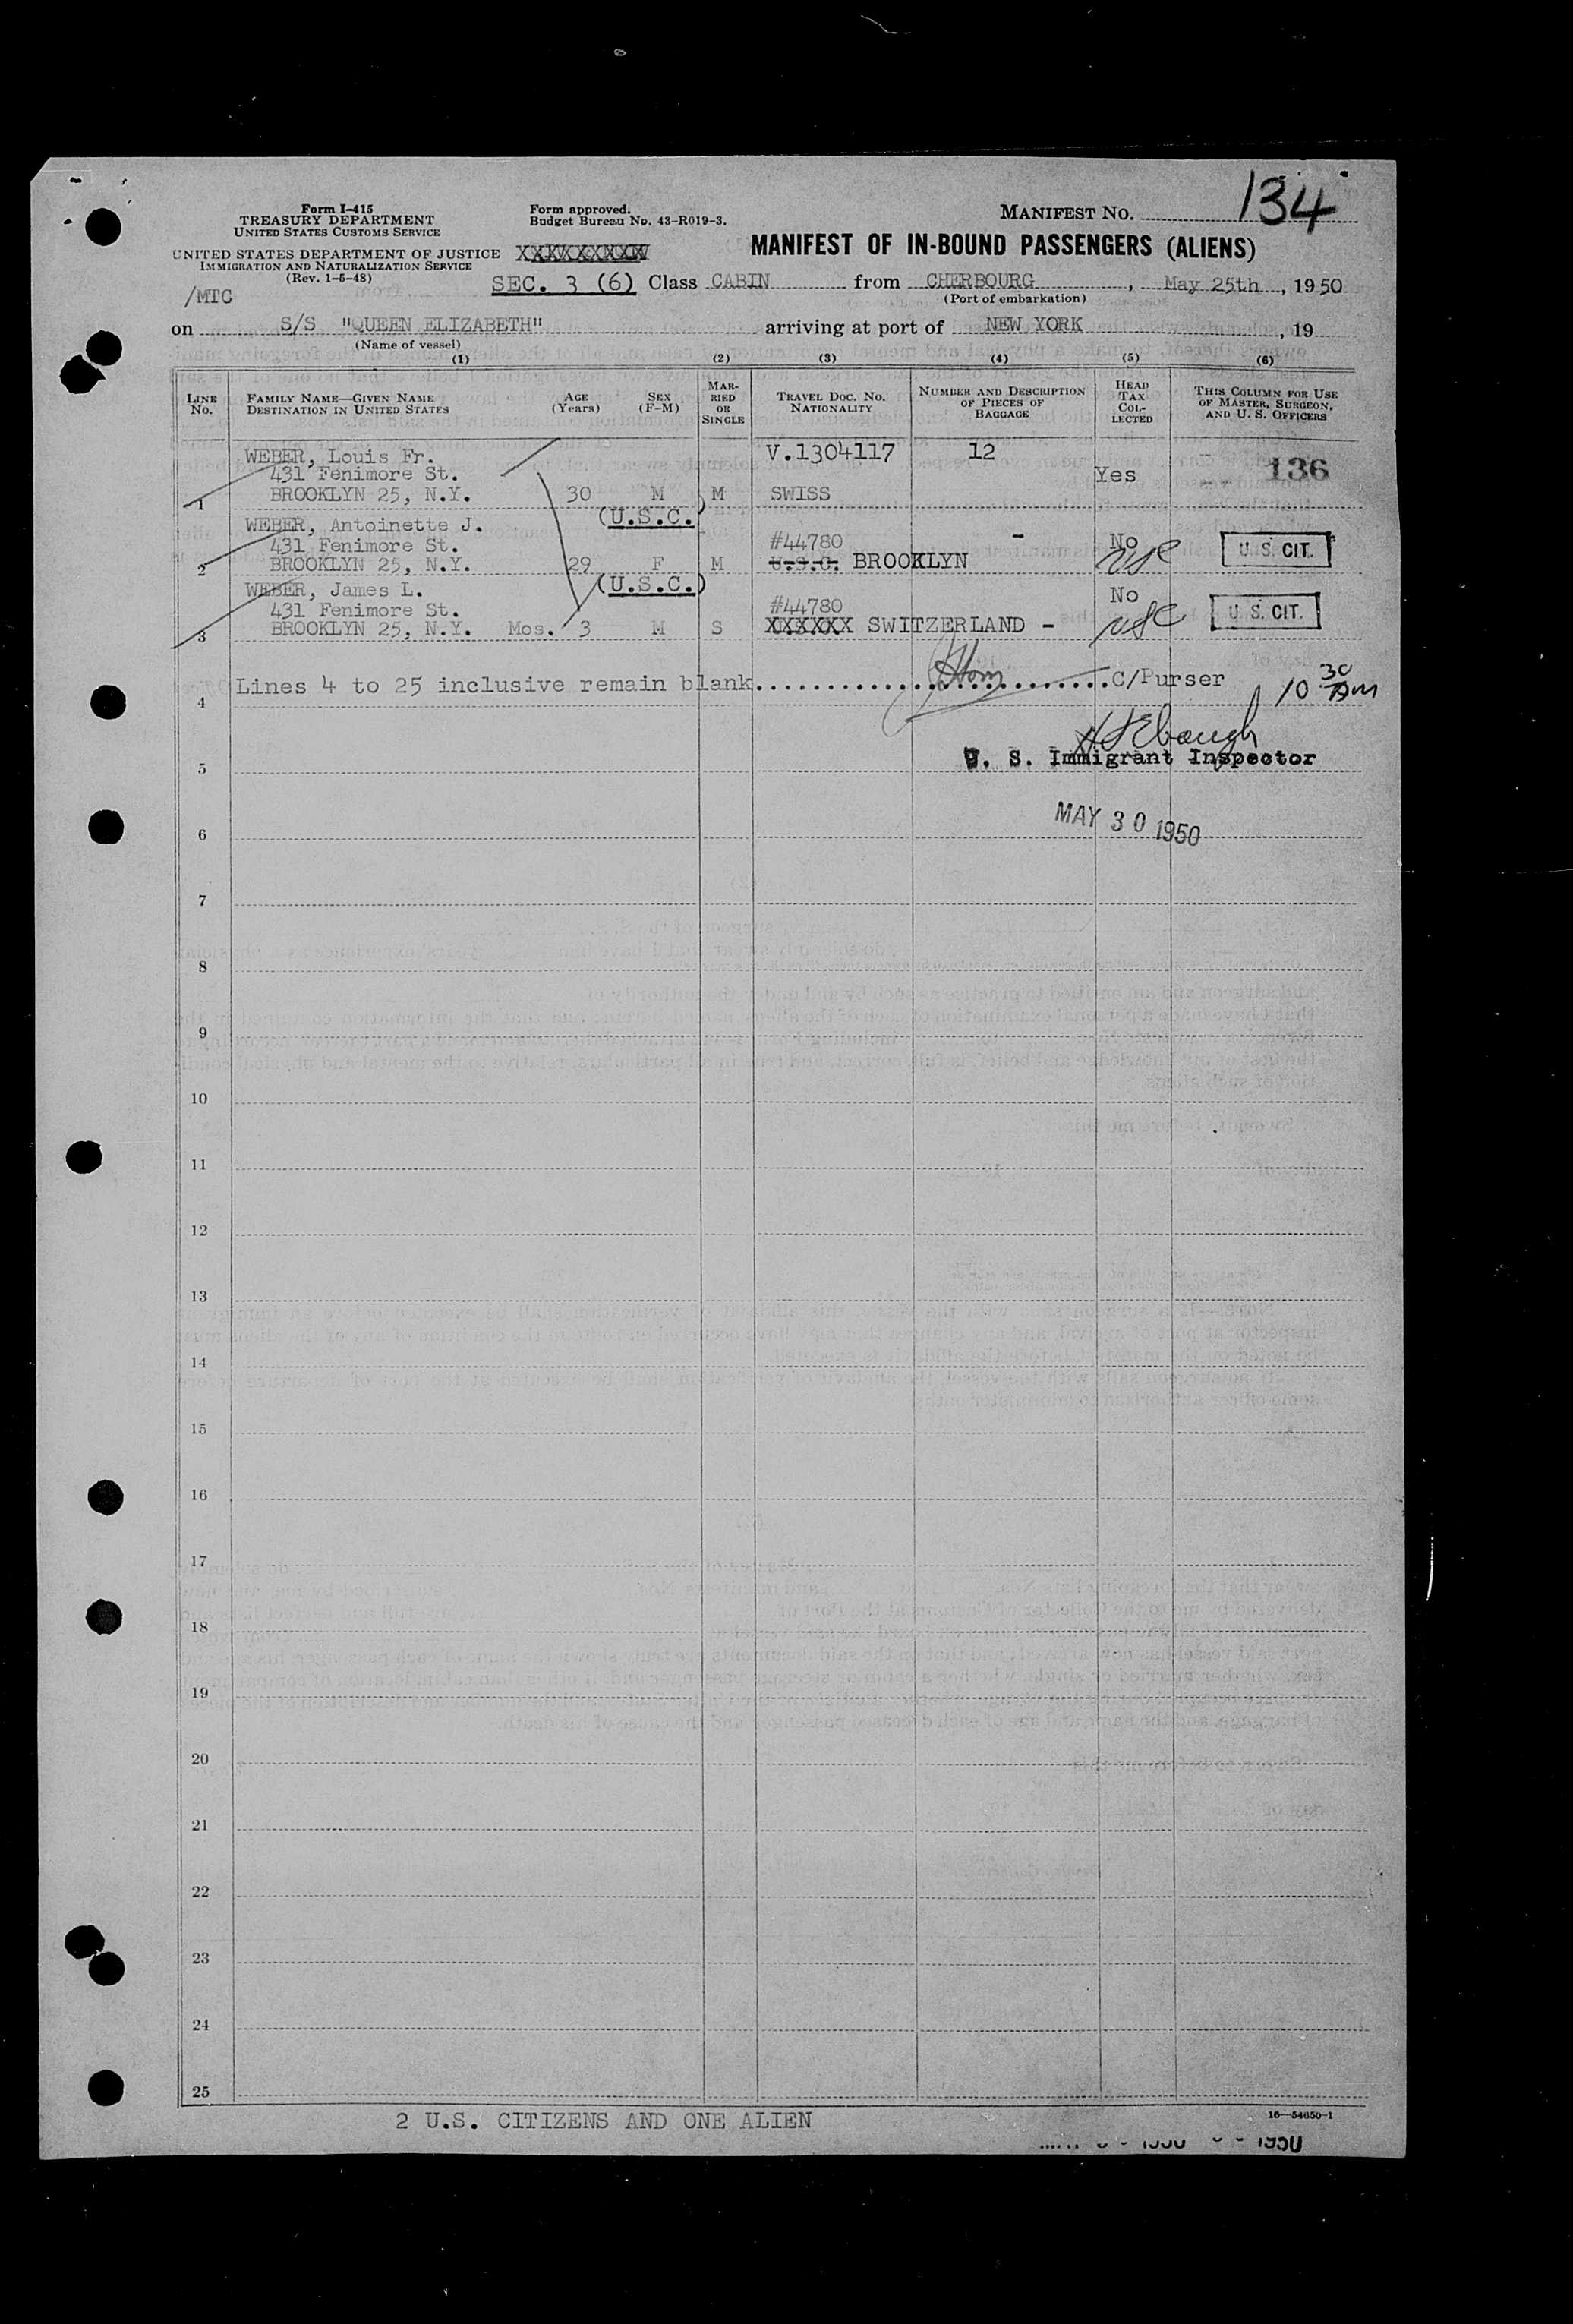 134
Form I-415
TREASURY DEPARTMENT
UNITED STATES CUSTOMS SERVICE
UNITED STATES DEPARTMENT OF JUSTICE
IMMIGRATION AND NATURALIZATION SERVICE
(Rev. 1-5-48)
Form approved.
Budget Bureau No. 43-R019-3.
MANIFEST NO.
MANIFEST OF IN-BOUND PASSENGERS (ALIENS)
/MTC SEC. 3 (6) Class CABIN from CHERBOURG, May 25th, 1950
(Port of embarkation)
on S/S "QUEEN ELIZABETH" arriving at port of NEW YORK, 19
(Name of vessel)
(1) (2) (3) (4) (5) (6)
LINE No. FAMILY NAME—GIVEN NAME DESTINATION IN UNITED STATES AGE (Years) SEX (F-M) MARRIED OR SINGLE TRAVEL DOC. NO. NATIONALITY NUMBER AND DESCRIPTION OF PIECES OF BAGGAGE HEAD TAX COLLECTED THIS COLUMN FOR USE OF MASTER, SURGEON, AND U. S. OFFICERS
WEBER, Louis Fr. V.1304117 12
431 Fenimore St. Yes 136
1 BROOKLYN 25, N.Y. 30 M M SWISS
WEBER, Antoinette J. (U.S.C.)
431 Fenimore St. #44780 - No U. S. CIT.
2 BROOKLYN 25, N.Y. 29 F M U.S.C. BROOKLYN USC
WEBER, James L. (U.S.C.) No
431 Fenimore St. #44780 U. S. CIT.
3 BROOKLYN 25, N.Y. Mos. 3 M S XXXXXX SWITZERLAND - USC
4 Lines 4 to 25 inclusive remain blank..............................C/Purser 10 30 AM
5 U. S. Immigrant Inspector
6 MAY 30 1950
7
8
9
10
11
12
13
14
15
16
17
18
19
20
21
22
23
24
25
2 U.S. CITIZENS AND ONE ALIEN
16—54650-1